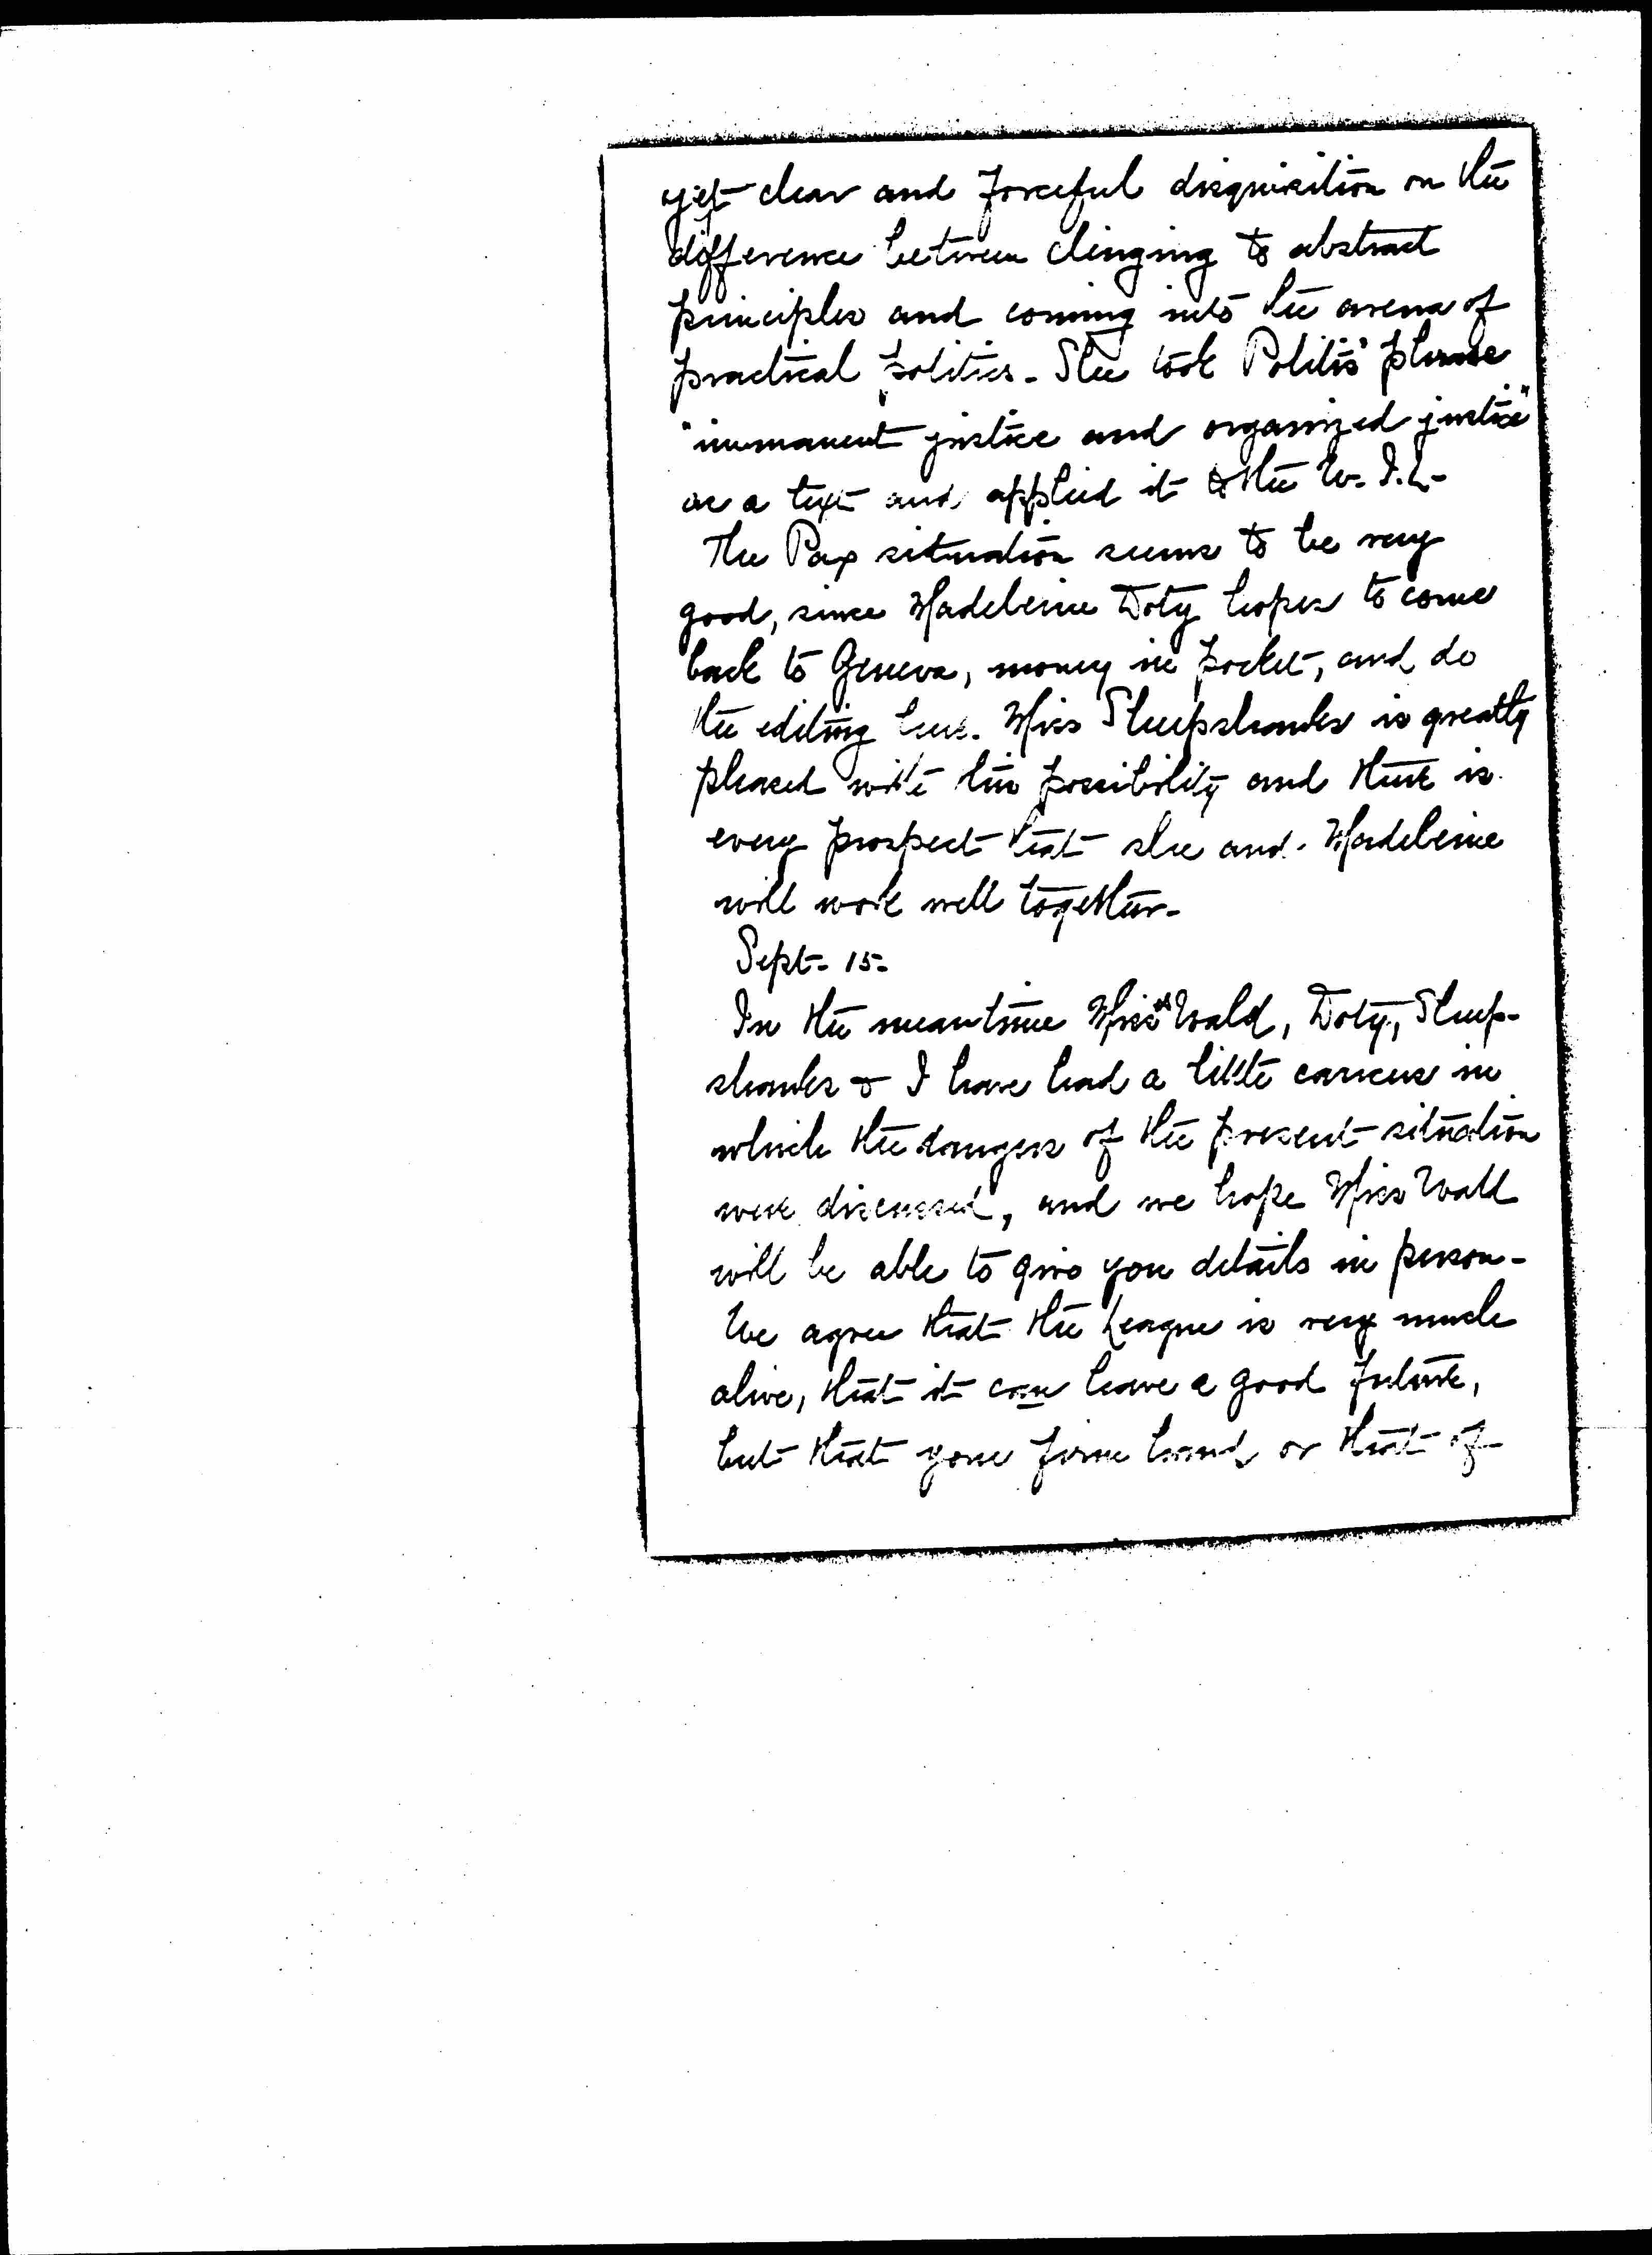 yet clear and forceful disquisition on the
difference between clinging to abstract
principles and coming into the arena of
practical politics. She took Politis' phrase
"immanent justice and organized justice"
as a text and applied it to the W.I.L.
The Pax situation seems to be very
good, since Madeleine Doty hopes to come
back to Geneva, money in pocket, and do
the editing here. Miss Sheepshanks is greatly
pleased with this possibility and there is
every prospect that she and Madeleine
will work well together.
Sept. 15.
In the meantime Miss Wald, Doty, Sheep-
shanks & I have had a little caucus in
which the dangers of the present situation
were discussed, and we hope Miss Wald
will be able to give you details in person.
We agree that the League is very much
alive, that it can have a good future,
but that your firm hand, or that of